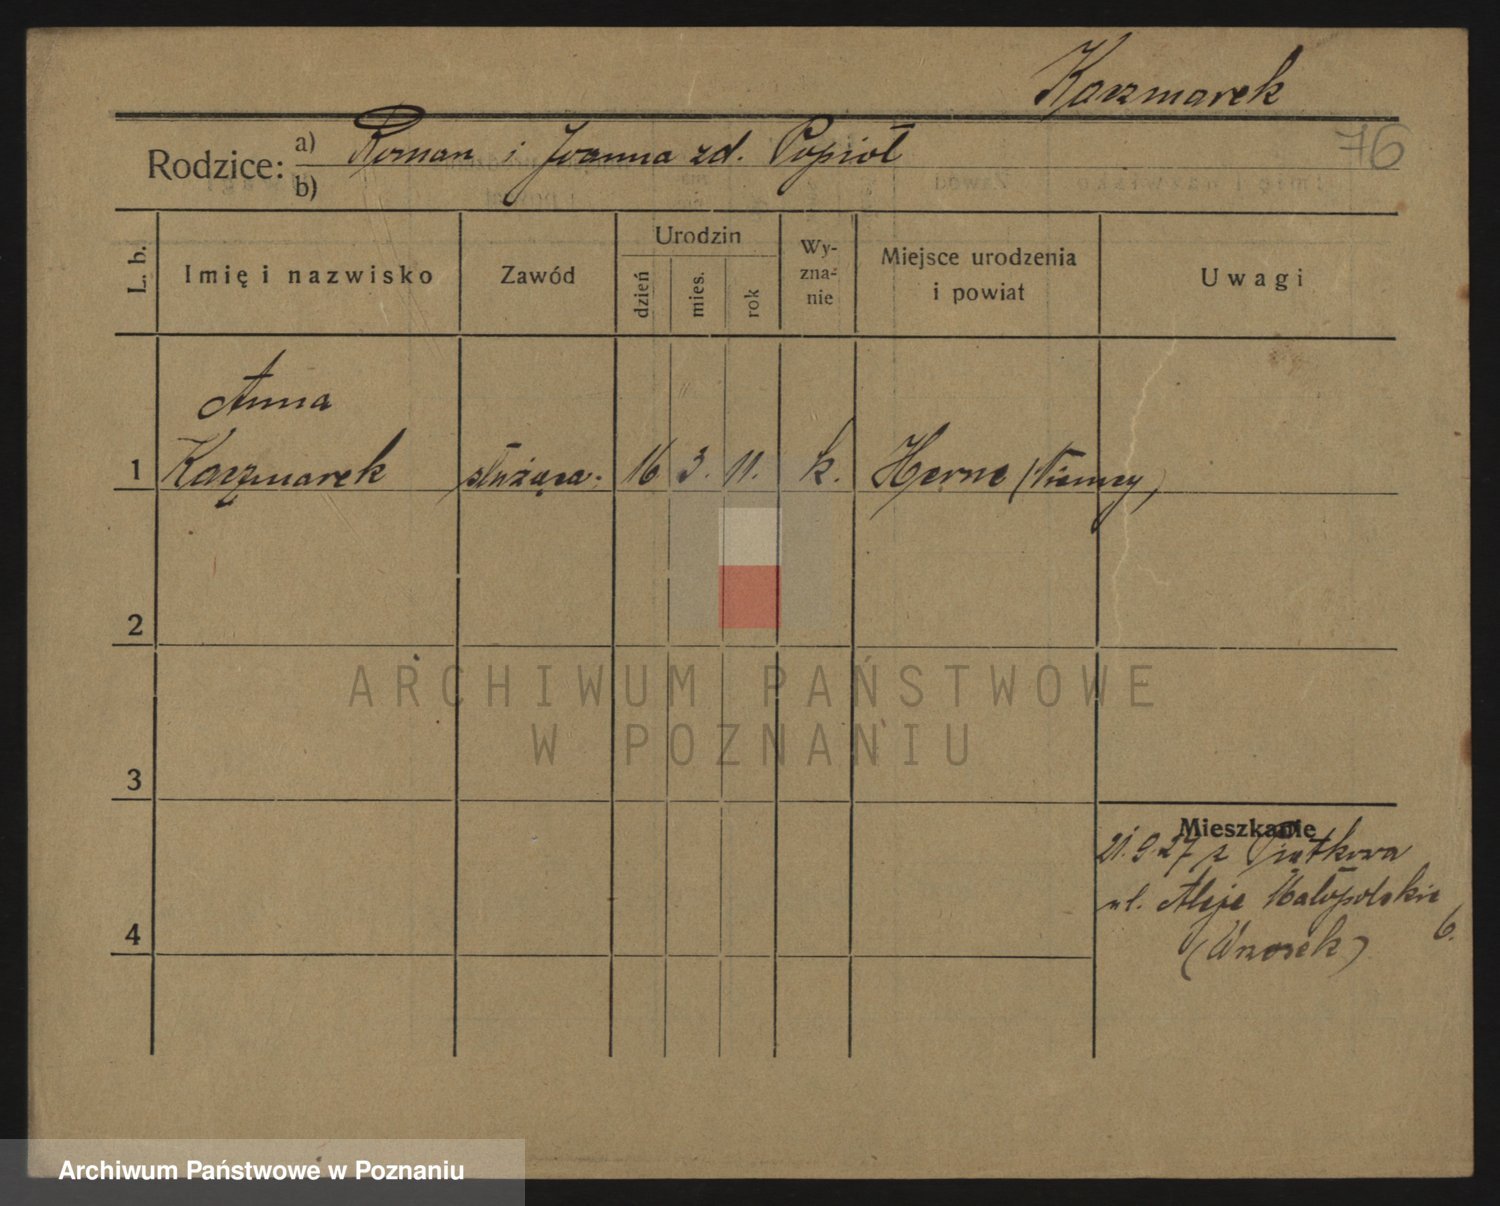 Kaczmarek
76
Rodzice: a) Roman i Joanna zd. Popioł
b)
L. b.
Imię i nazwisko
Zawód
Urodzin
dzień
mies.
rok
Wy-
zna-
nie
Miejsce urodzenia
i powiat
Uwagi
Anna
1 Kaczmarek służąca. 16 3. 11. k. Herne (Niemcy)
2
3
4
Mieszkanie
21.9.27 z Piątkowa
ul. Aleje Małopolskie
6.
(Wnosek)
ARCHIWUM PAŃSTWOWE
W POZNANIU
Archiwum Państwowe w Poznaniu